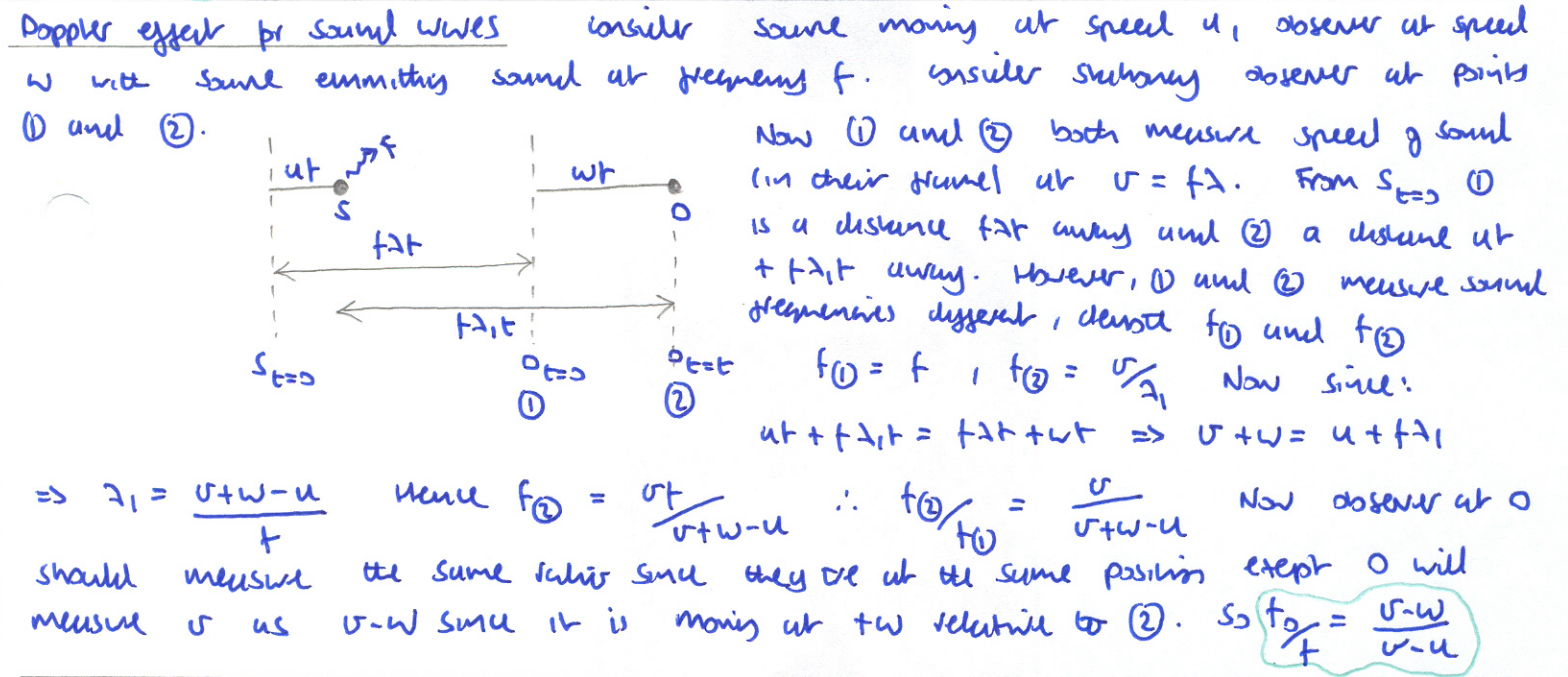 Doppler effect for sound waves consider source moving at speed u, observer at speed
w with source emmitting sound at frequency f. consider stationary observer at points
① and ②.
Now ① and ② both measure speed of sound
(in their frame) at v = fλ. From S t=0 ①
is a distance fλt away and ② a distance ut
+ fλ₁t away. However, ① and ② measure sound
frequencies different, denote f① and f②
f① = f , f② = v/λ₁ Now since:
ut + fλ₁t = fλt + wt ⇒ v + w = u + fλ₁
ut f wt
S O
fλt
fλ₁t
S t=0 O t=0 O t=t
① ②
⇒ λ₁ = (v+w-u)/f Hence f② = vf/(v+w-u) ∴ f②/f① = v/(v+w-u) Now observer at O
should measure the same ratio since they're at the same position exept O will
measure v as v-w since it is moving at +w relative to ②. So fo/f = (v-w)/(v-u)